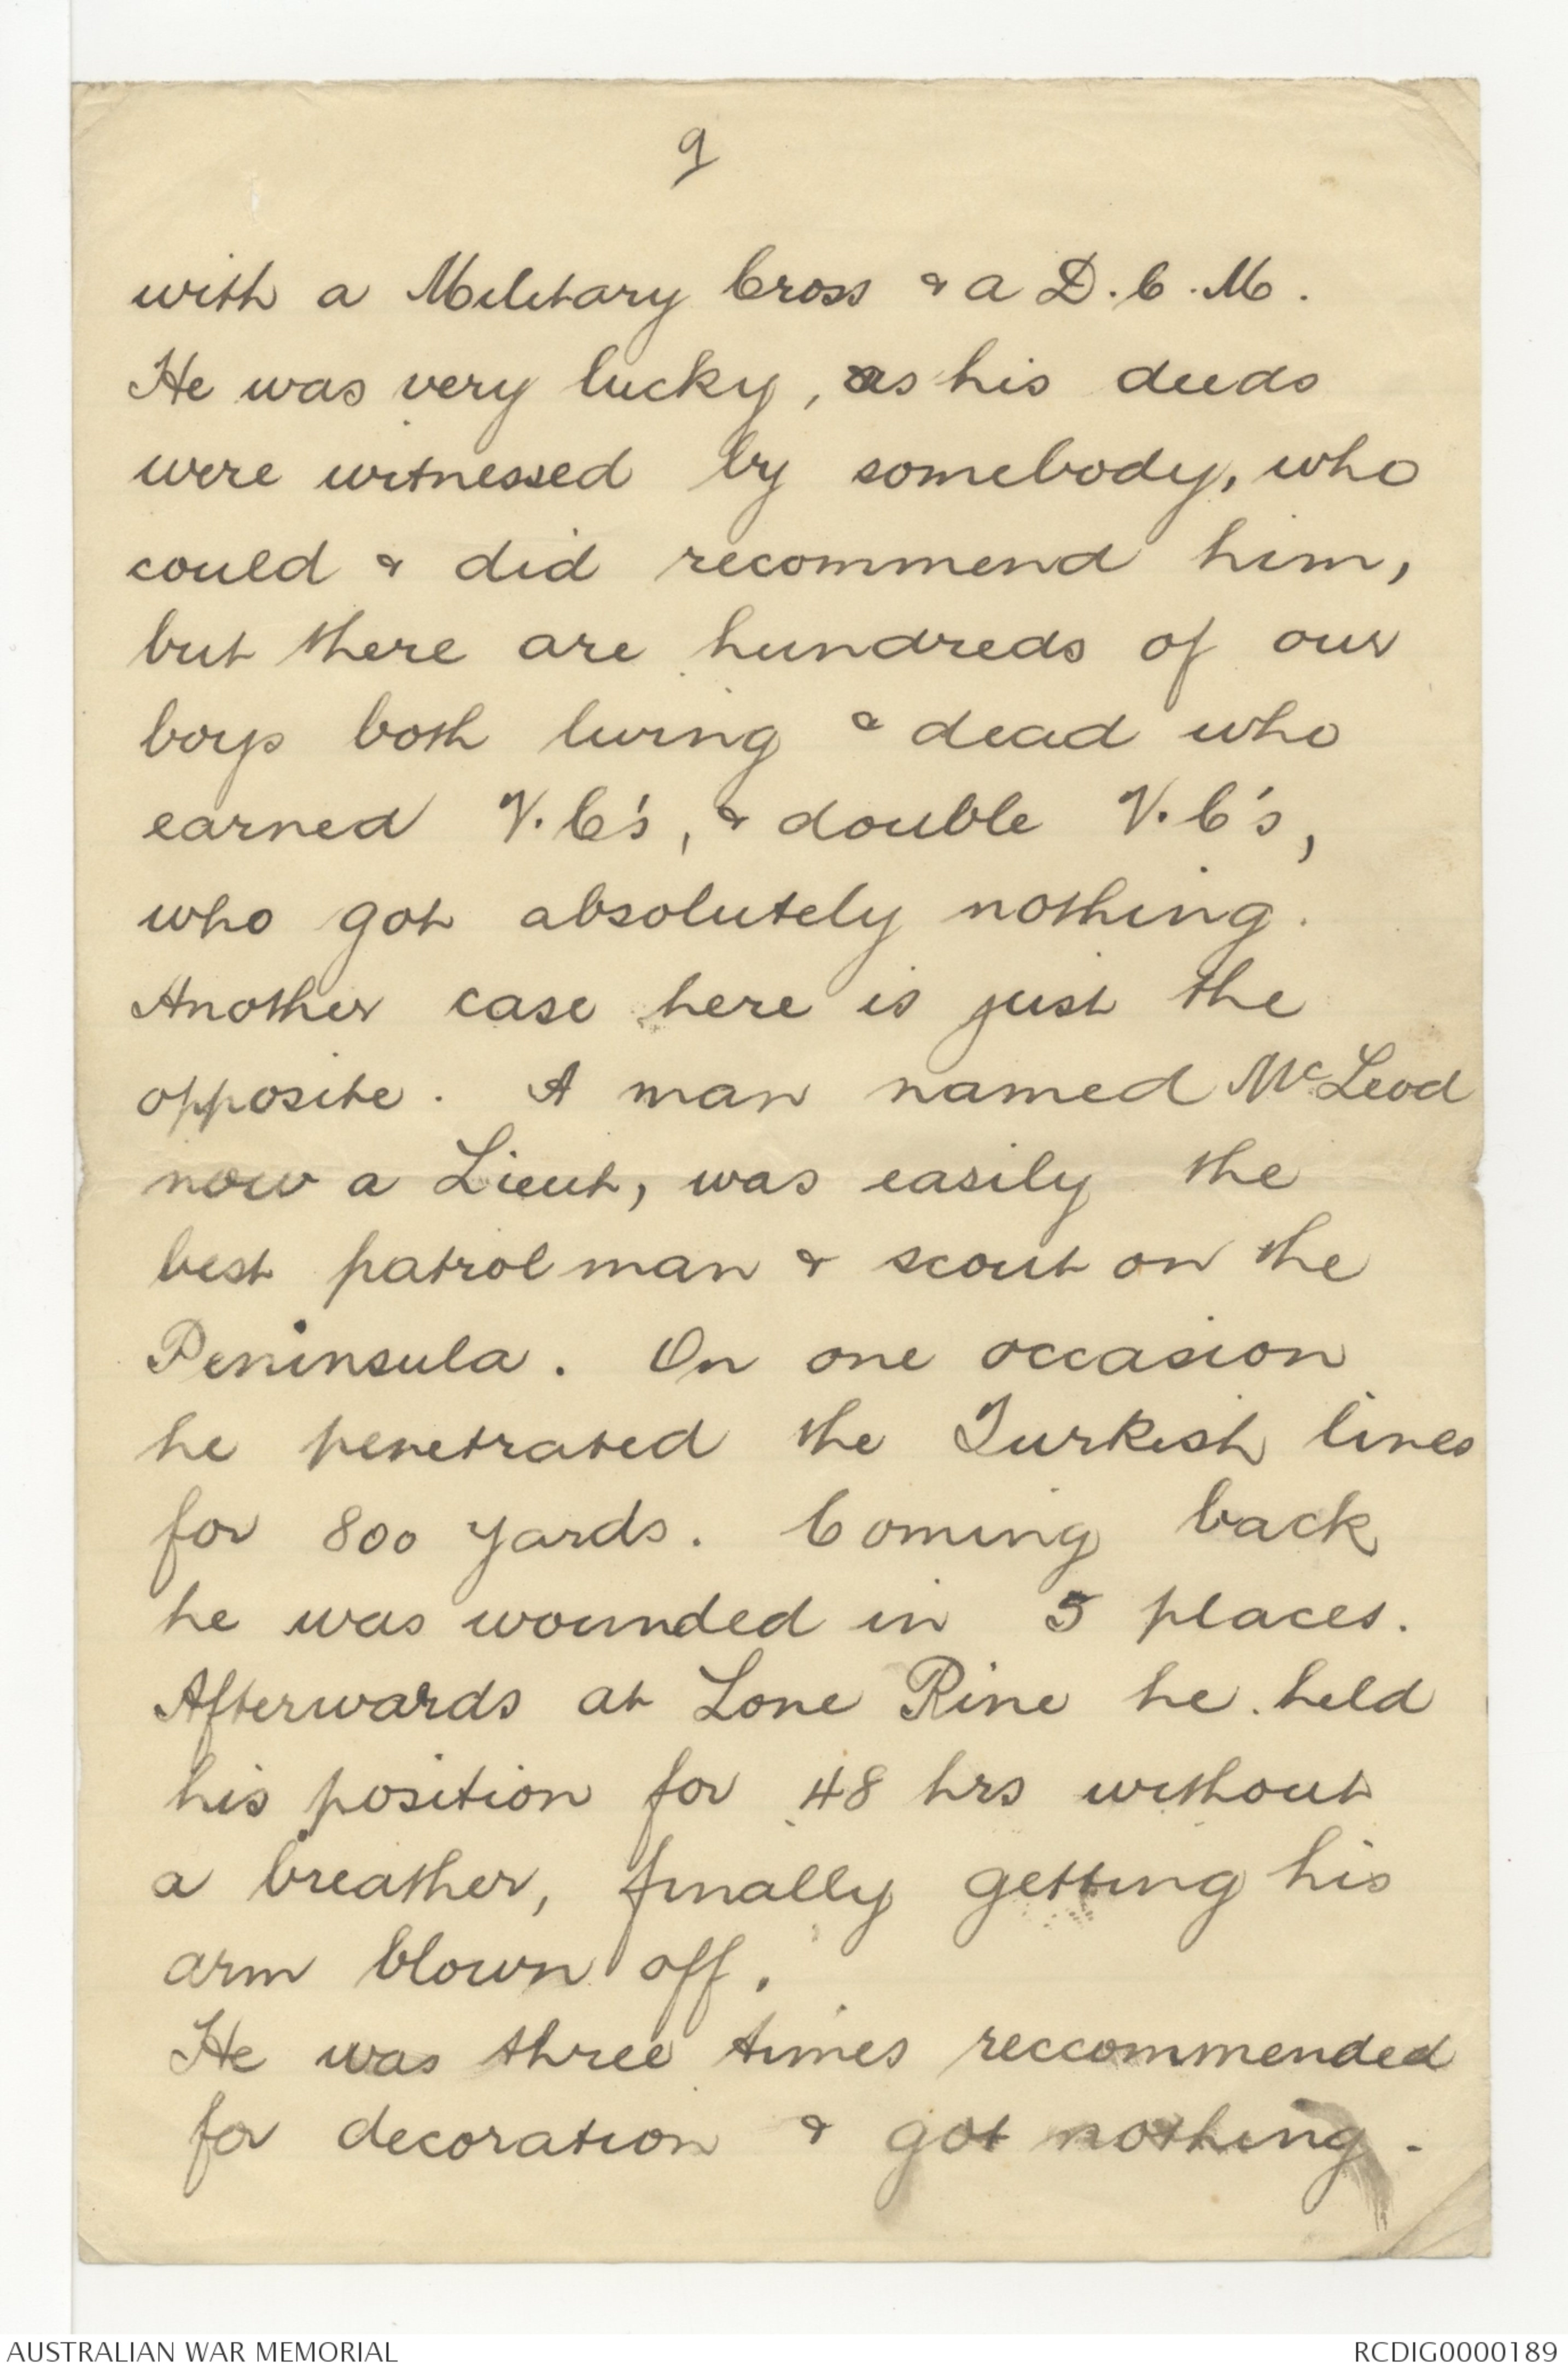 9
with a Military Cross & a D.C.M.
He was very lucky, as his deeds
were witnessed by somebody, who
could & did recommend him,
but there are hundreds of our
boys both living & dead who
earned V.C's, & double V.C's,
who got absolutely nothing.
Another case here is just the
opposite. A man named McLeod
now a Lieut, was easily the
best patrol man & scout on the
Peninsula. On one occasion
he penetrated the Turkish lines
for 800 yards. Coming back
he was wounded in 5 places.
Afterwards at Lone Pine he held
his position for 48 hrs without
a breather, finally getting his
arm blown off.
He was three times reccommended
for decoration & got nothing.
AUSTRALIAN WAR MEMORIAL
RCDIG0000189